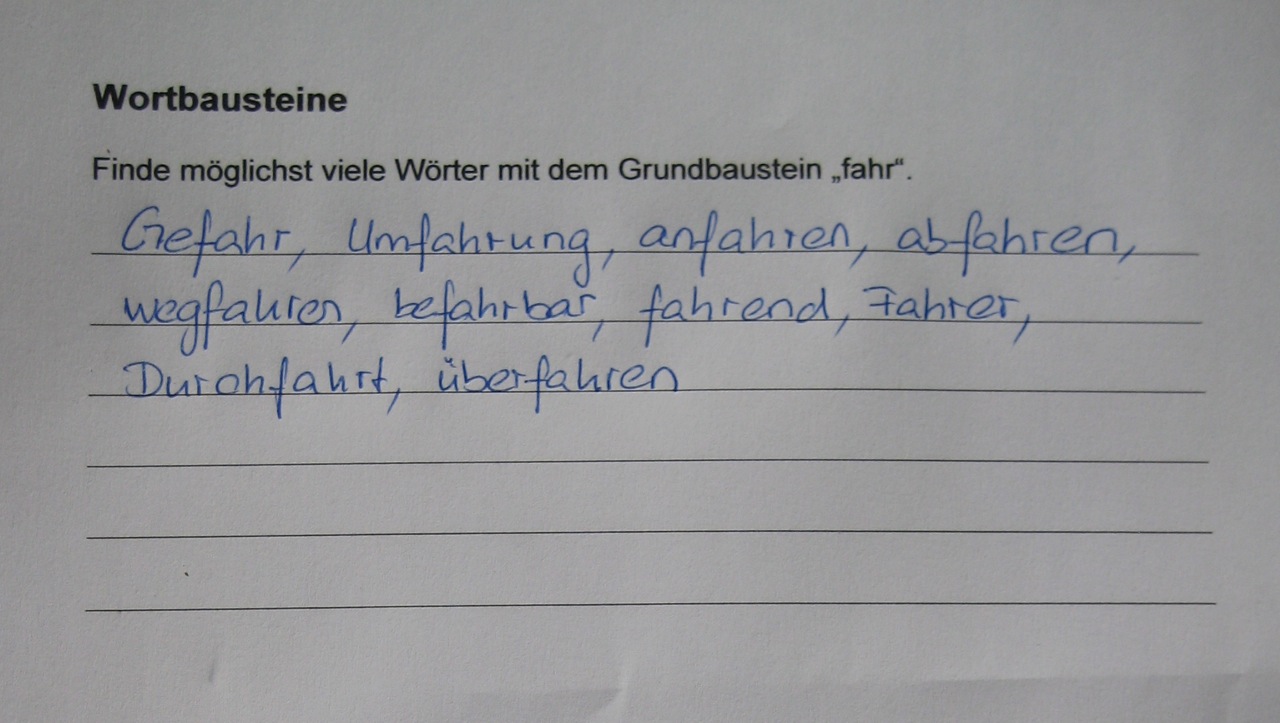 Wortbausteine
Finde möglichst viele Wörter mit dem Grundbaustein „fahr“.
Gefahr, Umfahrung, anfahren, abfahren,
wegfahren, befahrbar, fahrend, Fahrer,
Durchfahrt, überfahren